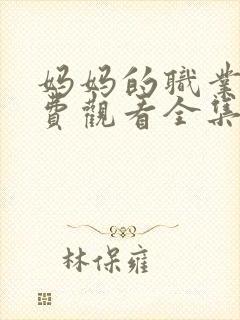 妈妈的職業
費觀看全集
林保雍